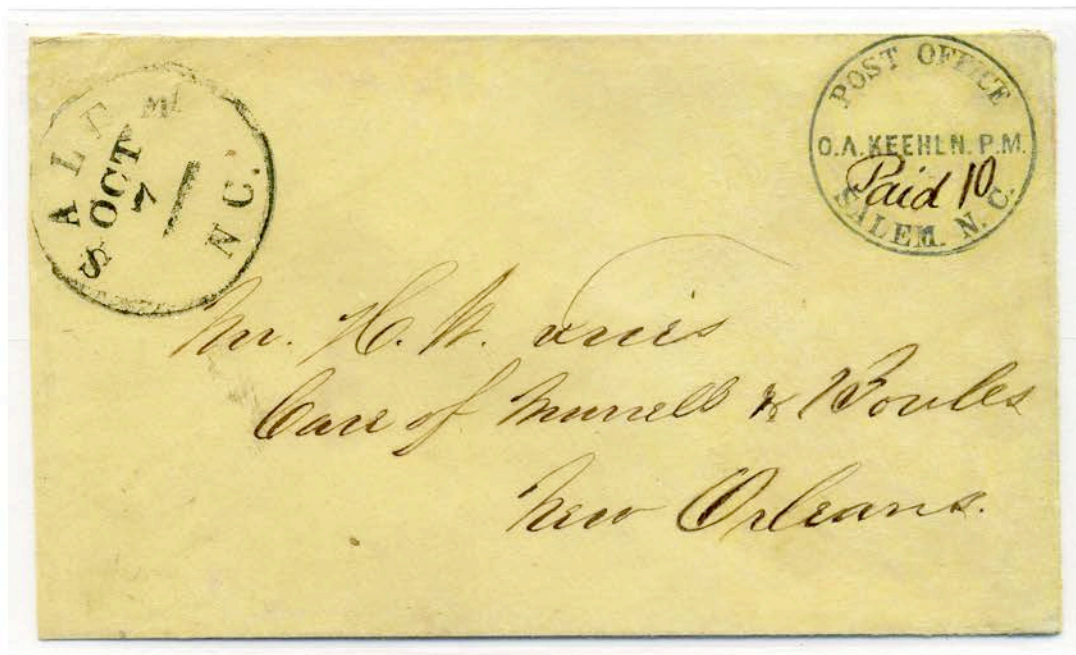 SALEM NC.
OCT
7
POST OFFICE
O.A. KEEHLN. P.M.
Paid 10
SALEM. N. C.
Mr. H. W. Fries
Care of Murrell & Bowles
New Orleans.